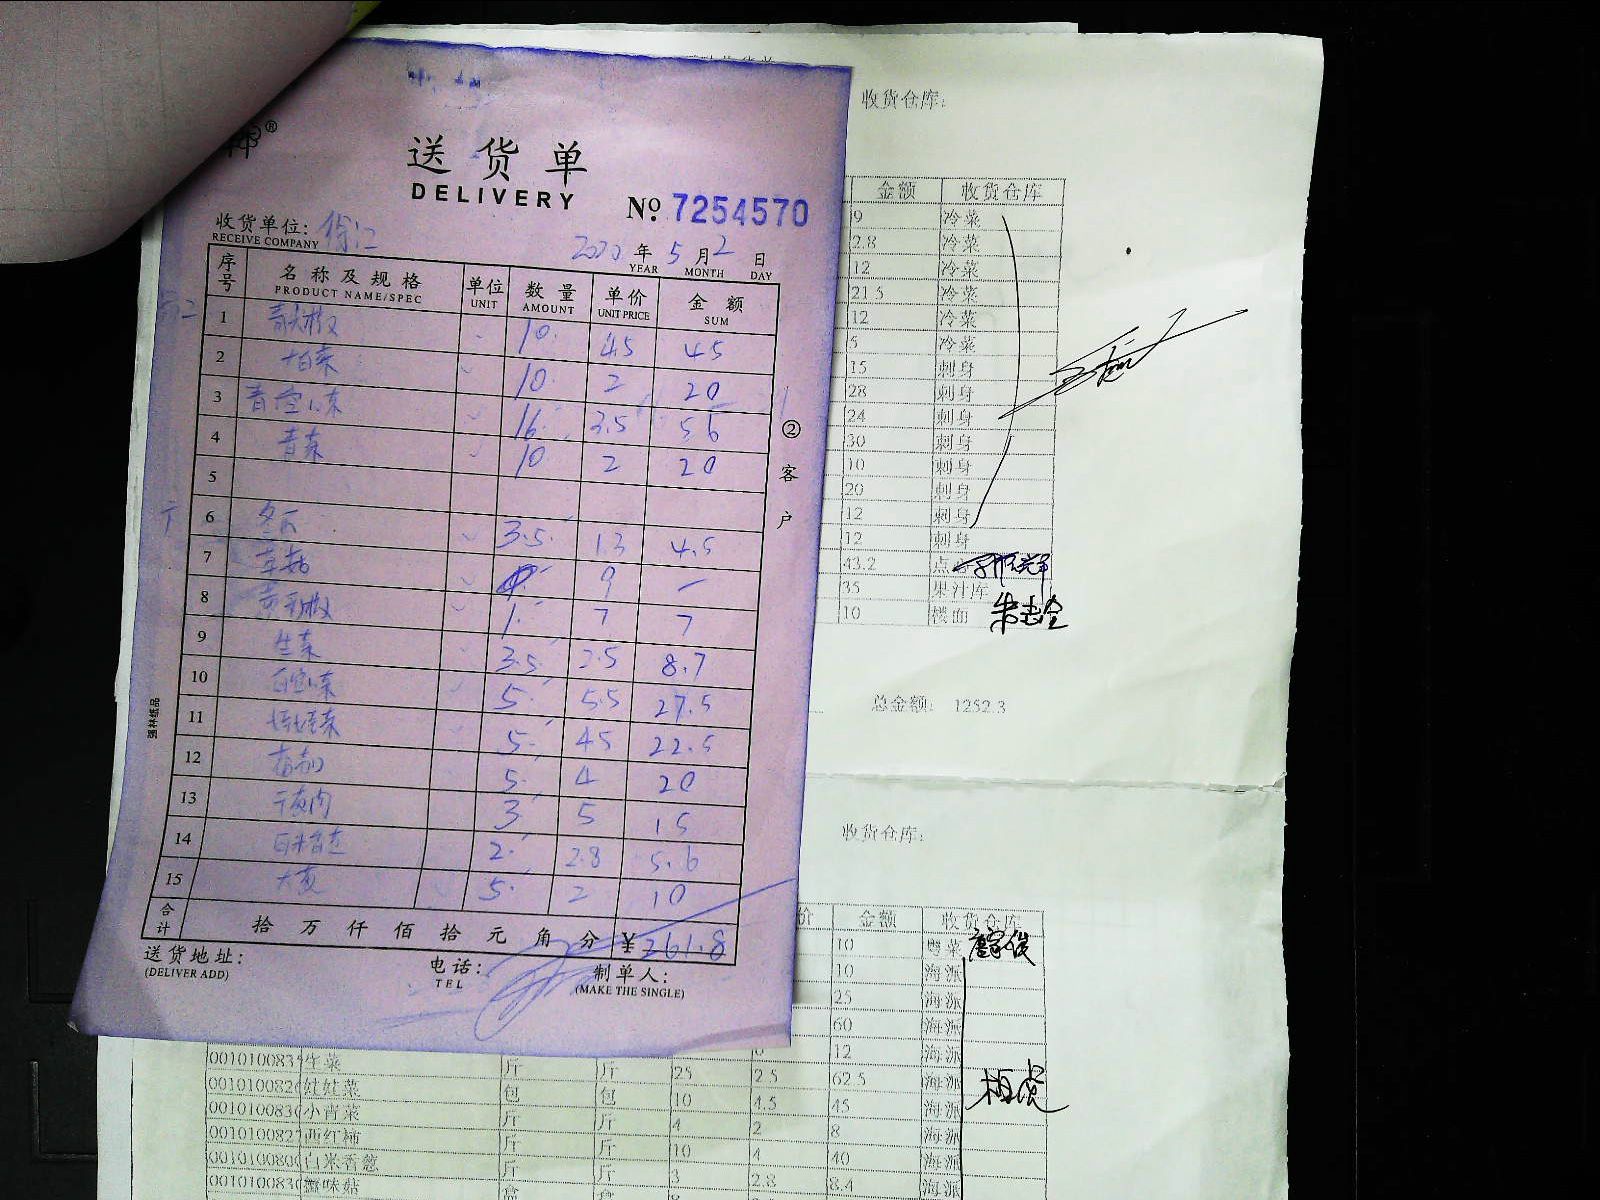 送货单
DELIVERY
№ 7254570
收货单位:
RECEIVE COMPANY
2020 年 5 月 2 日
YEAR MONTH DAY
序号 名称及规格 单位 数量 单价 金额
PRODUCT NAME/SPEC UNIT AMOUNT UNIT PRICE SUM
1 10 4.5 45
2 10 2 20
3 16 3.5 56
4 青菜 10 2 20
5
6 冬瓜 3.5 1.3 4.5
7 草菇 9 —
8 1 7 7
9 生菜 3.5 2.5 8.7
10 5 5.5 27.5
11 5 45 22.5
12 番茄 5 4 20
13 3 5 15
14 白米香葱 2 2.8 5.6
15 大葱 5 2 10
合计 拾 万 仟 佰 拾 元 角 分 ¥ 261.8
送货地址:
(DELIVER ADD)
电话:
TEL
制单人:
(MAKE THE SINGLE)
② 客户
强林纸品
收货仓库:
金额 收货仓库
9 冷菜
2.8 冷菜
12 冷菜
21.5 冷菜
12 冷菜
5 冷菜
15 刺身
28 刺身
24 刺身
30 刺身
10 刺身
20 刺身
12 刺身
12 刺身
43.2 点
35 果汁库
10 楼面
总金额: 1252.3
收货仓库:
价 金额 收货仓库
10 粤菜
10 海派
25 海派
60 海派
12 海派
001010083 生菜 斤 斤 25 2.5 62.5 海派
001010082 娃娃菜 包 包 10 4.5 45 海派
001010083 小青菜 斤 斤 4 2 8 海派
001010082 西红柿 斤 斤 10 4 40 海派
001010080 白米香葱 斤 斤 3 2.8 8.4 海派
001010083 蟹味菇 盒 盒